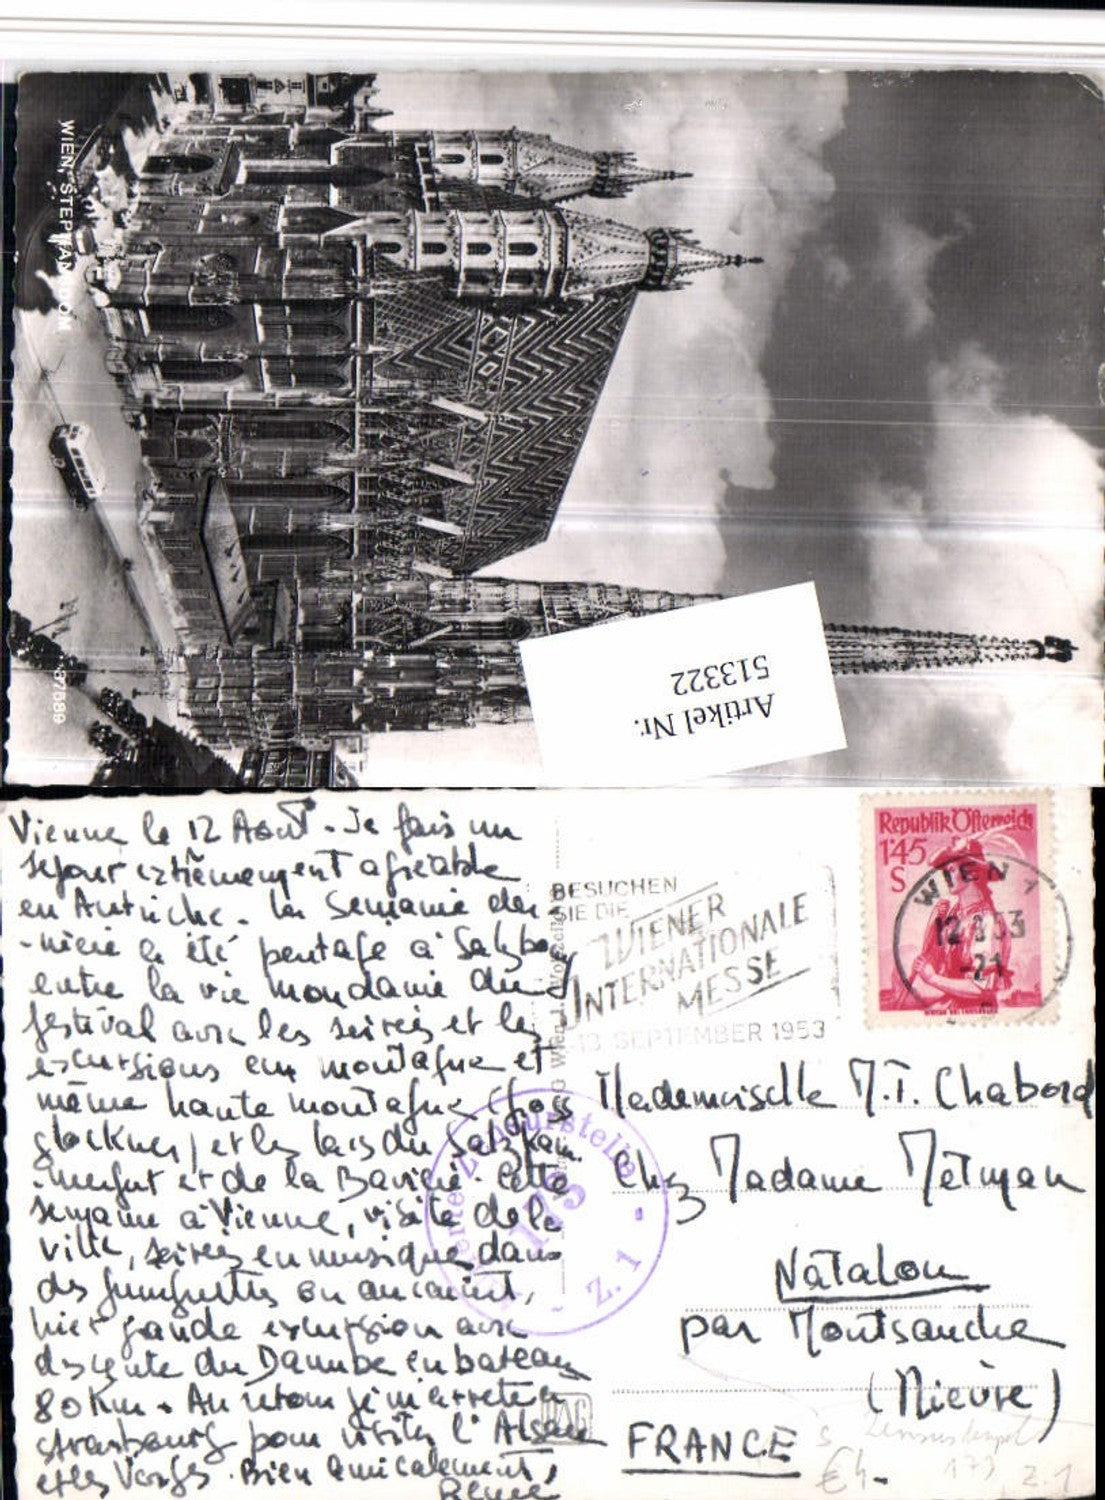 WIEN, STEPHANSDOM
Artikel Nr.
513322
Vienne le 12 Août - Je fais un
séjour extrêmement agréable
en Autriche. La semaine der
-nière a été partagé à Salzbg
entre la vie mondaine du
festival avec les soirées et les
excursions en montagne et
même haute montagne (Gross
glockner) et les lacs du Salzkam
mergut et de la Bavière. Cette
semaine à Vienne, visite de la
ville, soirées en musique dans
des guinguettes ou au caveau,
hier grande excursion avec
descente du Danube en bateau
80 Km. Au retour je m'arrête à
Strasbourg pour visiter l'Alsace
et les Vosges. Bien amicalement,
Renée
BESUCHEN
SIE DIE
WIENER
INTERNATIONALE
MESSE
-13 SEPTEMBER 1953
Republik Österreich
1'45
S
WIEN 1
12.8.53
-21
Zensurstelle
173
Z. 1
Mademoiselle M.T. Chabord
Chez Madame Métman
Natalou
par Montsauche
(Nièvre)
FRANCE
€4-
173 Z.1